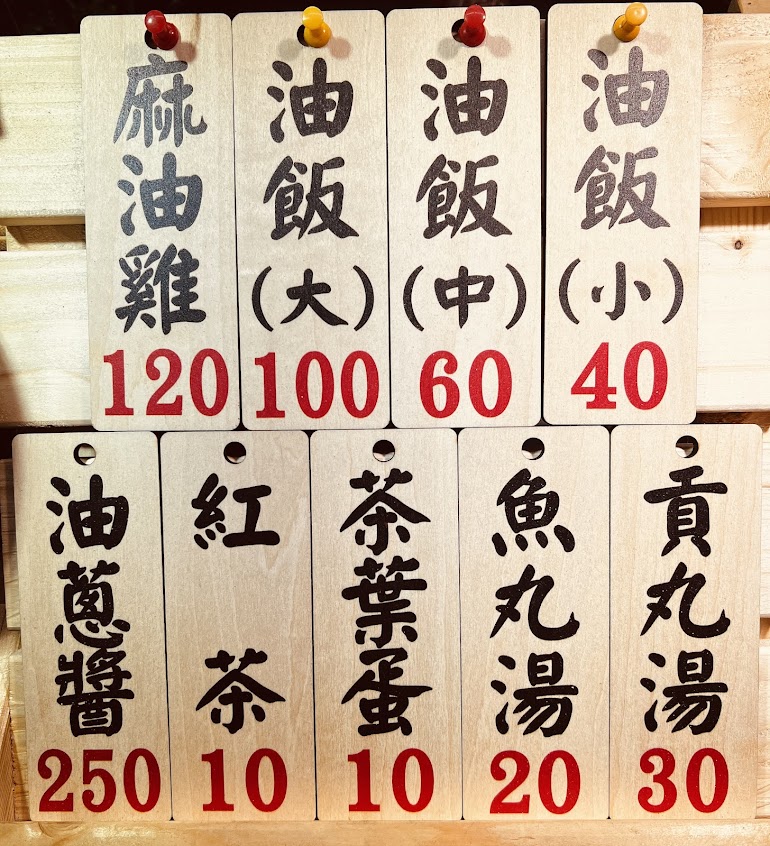 麻油雞
120
油飯
(大)
100
油飯
(中)
60
油飯
(小)
40
油蔥醬
250
紅茶
10
茶葉蛋
10
魚丸湯
20
貢丸湯
30